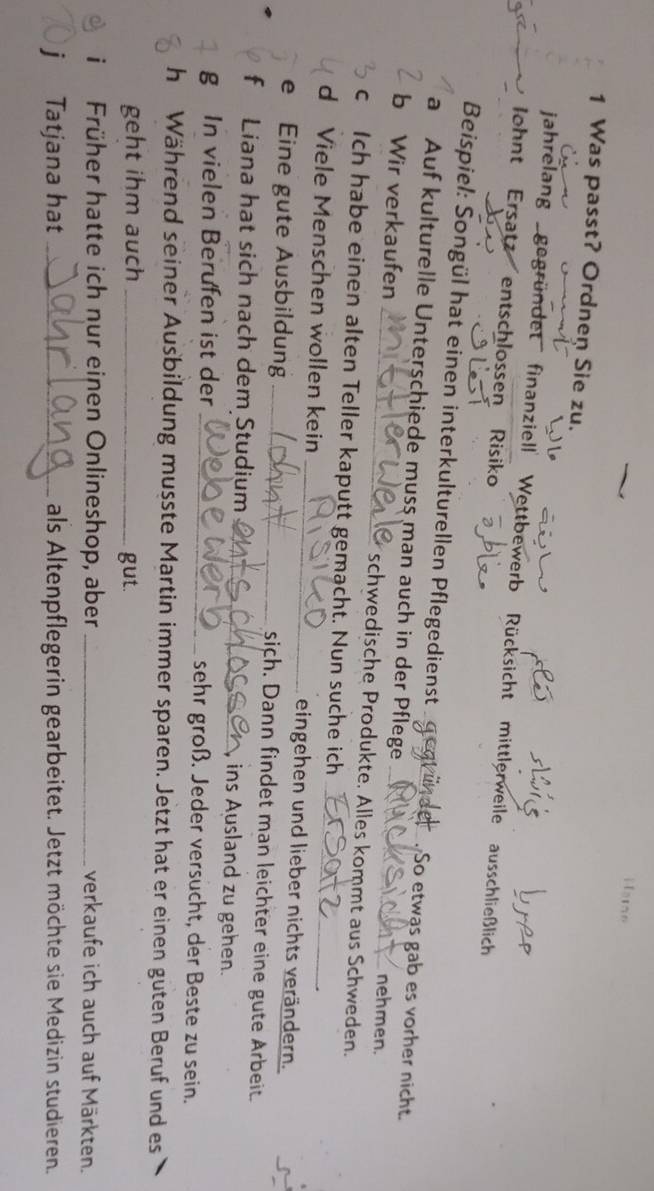 1 Was passt? Ordnen Sie zu.
jahrelang gegründet finanziell Wettbewerb Rücksicht mittlerweile ausschließlich
lohnt Ersatz entschlossen Risiko
Beispiel: Songül hat einen interkulturellen Pflegedienst gegründet. So etwas gab es vorher nicht.
1 a Auf kulturelle Unterschiede muss man auch in der Pflege Rücksicht nehmen.
2 b Wir verkaufen mittlerweile schwedische Produkte. Alles kommt aus Schweden.
3 c Ich habe einen alten Teller kaputt gemacht. Nun suche ich Ersatz.
4 d Viele Menschen wollen kein Risiko eingehen und lieber nichts verändern.
e Eine gute Ausbildung lohnt sich. Dann findet man leichter eine gute Arbeit.
6 f Liana hat sich nach dem Studium entschlossen, ins Ausland zu gehen.
7 g In vielen Berufen ist der Webewerb sehr groß. Jeder versucht, der Beste zu sein.
8 h Während seiner Ausbildung musste Martin immer sparen. Jetzt hat er einen guten Beruf und es
geht ihm auch gut.
i Früher hatte ich nur einen Onlineshop, aber verkaufe ich auch auf Märkten.
10 j Tatjana hat Jahrlang als Altenpflegerin gearbeitet. Jetzt möchte sie Medizin studieren.